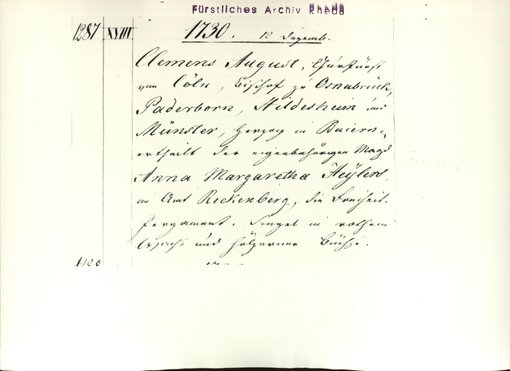 Fürstliches Archiv Rheda
1287 XVIII 1730. 12 Dezemb.
Clemens August, Churfürst
von Cöln, Bischof zu Osnabrück,
Paderborn, Hildesheim und
Münster, Herzog in Baiern
ertheilt der eigenbehörigen Magd
Anna Margaretha Heylers
im Amt Reckenberg, die Freiheit.
Pergament. Siegel in rothem
Wachs und hölzerner Büchse.